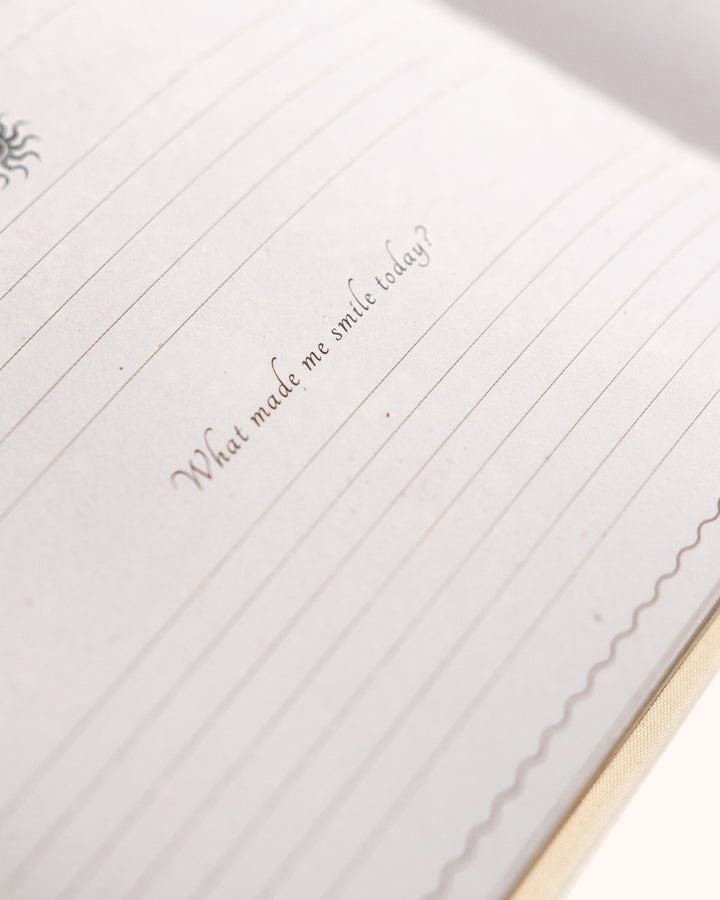 What made me smile today?